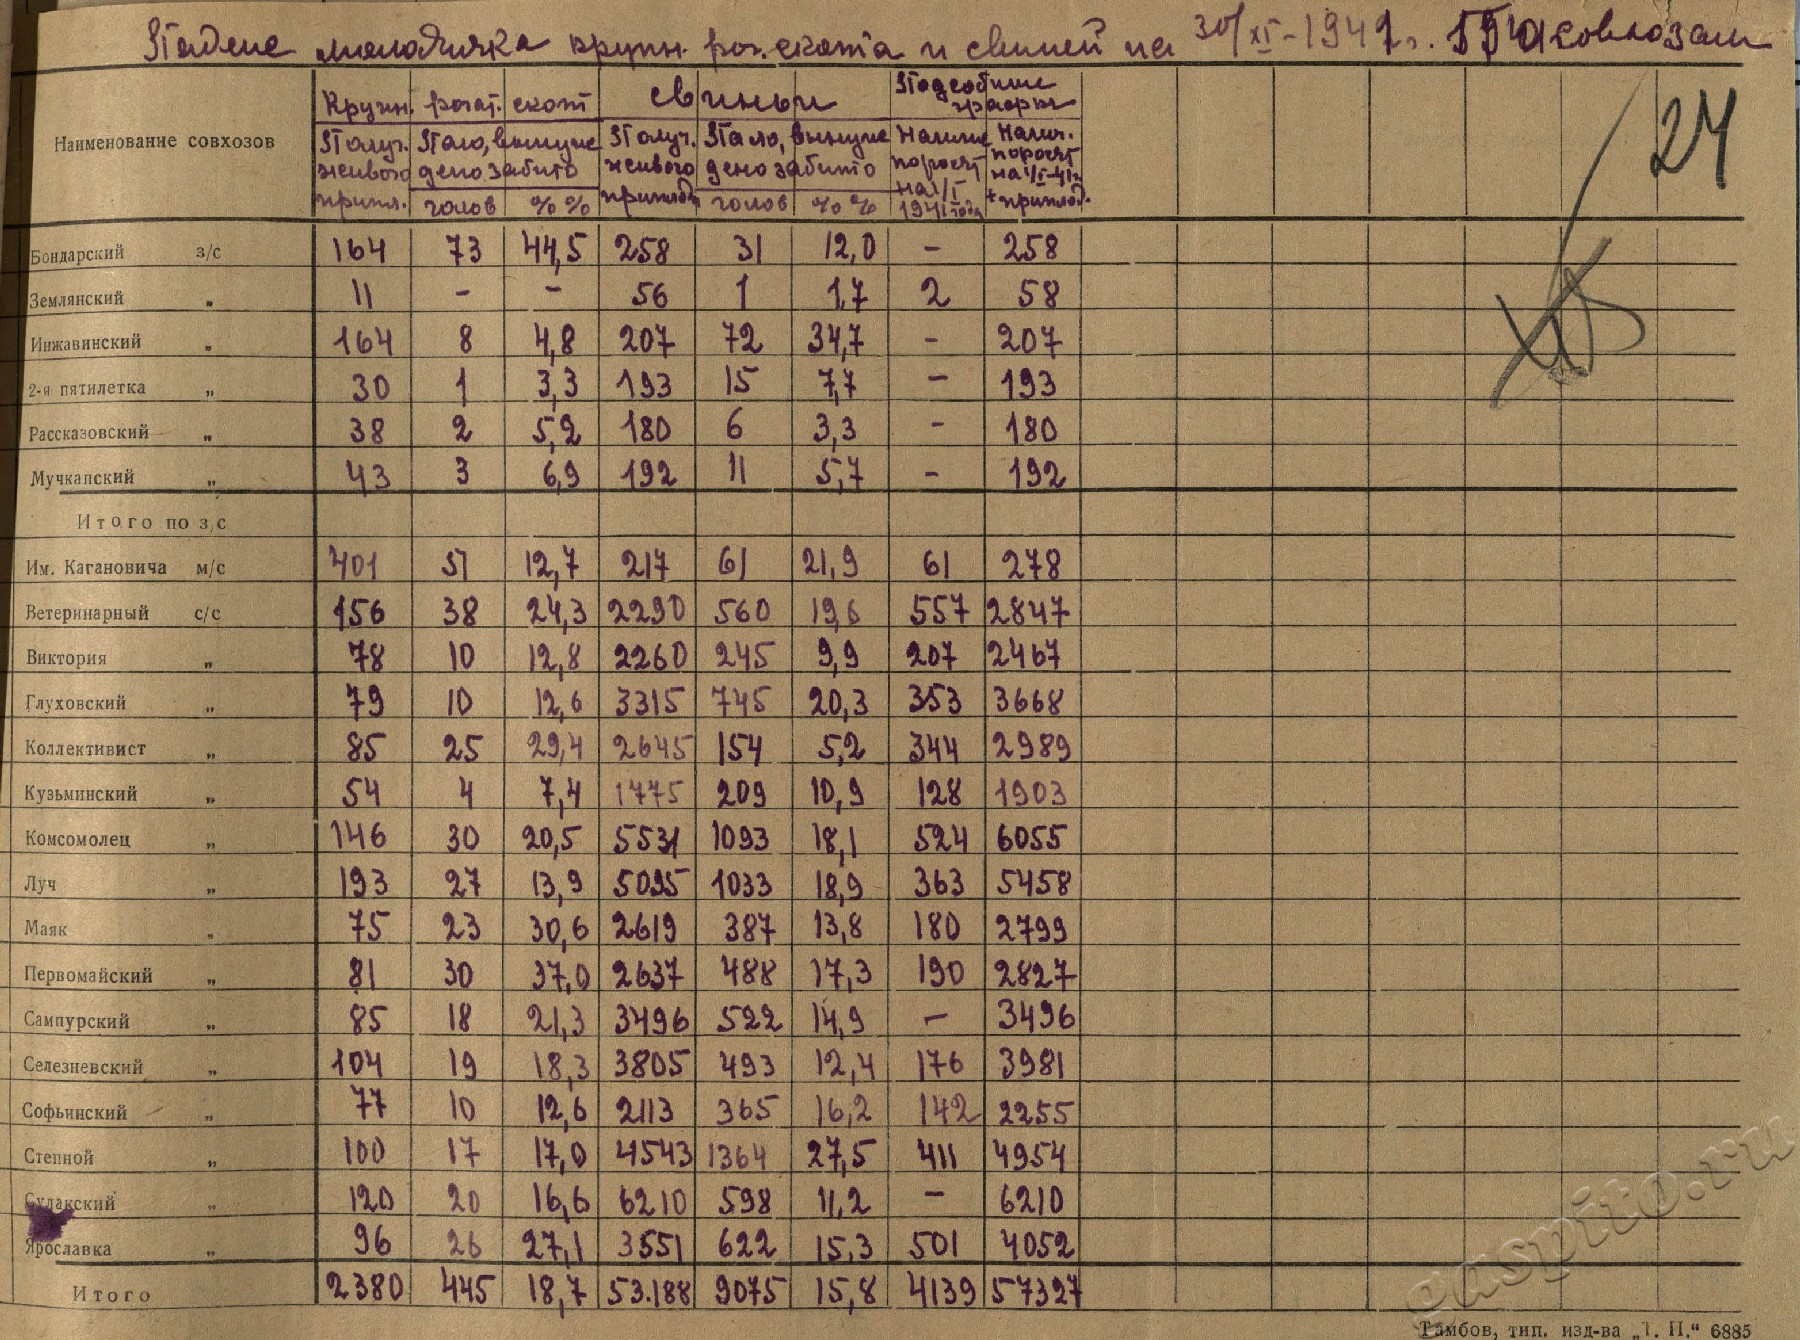 Падение молодняка крупн. рог. скота и свиней на 30/XI-1941 г. совхозам
24
Наименование совхозов
Крупн. рогат. скот свиньи Подсобные графы
Получ. живого припл. Пало, вынужде дено забито голов %% Получ. живого приплода Пало, вынужде дено забито голов %% Налич поросят на 1/I 1941 года Налич. поросят на 1/I-41г. + приплод.
Бондарский з/с 164 73 44,5 258 31 12,0 – 258
Землянский „ 11 – – 56 1 1,7 2 58
Инжавинский „ 164 8 4,8 207 72 34,7 – 207
2-я пятилетка „ 30 1 3,3 193 15 7,7 – 193
Рассказовский „ 38 2 5,2 180 6 3,3 – 180
Мучкапский „ 43 3 6,9 192 11 5,7 – 192
Итого по з/с
Им. Кагановича м/с 401 51 12,7 217 61 21,9 61 278
Ветеринарный с/с 156 38 24,3 2290 560 19,6 557 2847
Виктория „ 78 10 12,8 2260 245 9,9 207 2467
Глуховский „ 79 10 12,6 3315 745 20,3 353 3668
Коллективист „ 85 25 29,4 2645 154 5,2 344 2989
Кузьминский „ 54 4 7,4 1775 209 10,9 128 1903
Комсомолец „ 146 30 20,5 5531 1093 18,1 524 6055
Луч „ 193 27 13,9 5095 1033 18,9 363 5458
Маяк „ 75 23 30,6 2619 387 13,8 180 2799
Первомайский „ 81 30 37,0 2637 488 17,3 190 2827
Сампурский „ 85 18 21,3 3496 522 14,9 – 3496
Селезневский „ 104 19 18,3 3805 493 12,4 176 3981
Софьинский „ 77 10 12,6 2113 365 16,2 142 2255
Степной „ 100 17 17,0 4543 1364 27,5 411 4954
Сулакский „ 120 20 16,6 6210 598 11,2 – 6210
Ярославка „ 96 26 27,1 3551 622 15,3 501 4052
Итого 2380 445 18,7 53.188 9075 15,8 4139 57327
gaspito.ru
Тамбов, тип. изд-ва „Т. П.“ 6885